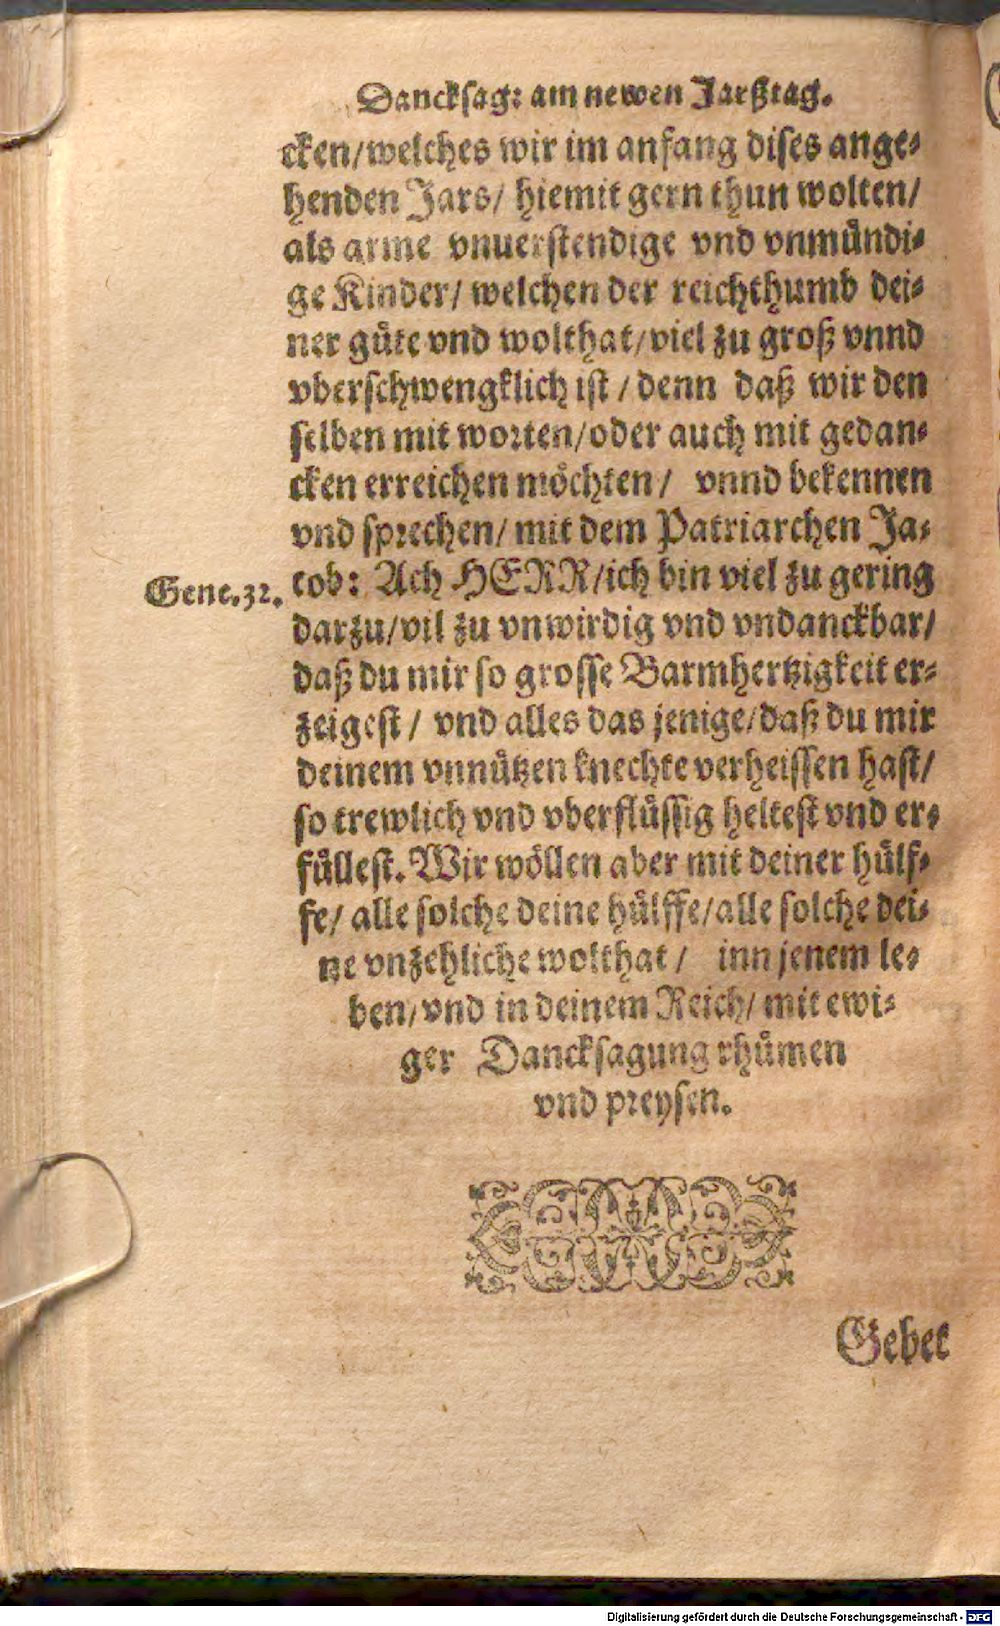 Dancksag: am newen Jarßtag.
cken/welches wir im anfang dises ange-
henden Jars/ hiemit gern thun wolten/
als arme vnuerstendige vnd vnmündi-
ge Kinder/ welchen der reichthumb dei-
ner güte vnd wolthat/viel zu groß vnnd
vberschwengklich ist / denn daß wir den
selben mit worten/oder auch mit gedan-
cken erreichen möchten/ vnnd bekennen
vnd sprechen/ mit dem Patriarchen Ja-
Gene.32. cob: Ach HERR/ich bin viel zu gering
darzu/vil zu vnwirdig vnd vndanckbar/
daß du mir so grosse Barmhertzigkeit er-
zeigest / vnd alles das jenige/daß du mir
deinem vnnützen knechte verheissen hast/
so trewlich vnd vberflüssig heltest vnd er-
füllest. Wir wöllen aber mit deiner hülf-
fe/ alle solche deine hülffe/alle solche dei-
ne vnzehliche wolthat / inn jenem le-
ben/vnd in deinem Reich/ mit ewi-
ger Dancksagung rhümen
vnd preysen.
Gebet
Digitalisierung gefördert durch die Deutsche Forschungsgemeinschaft - DFG